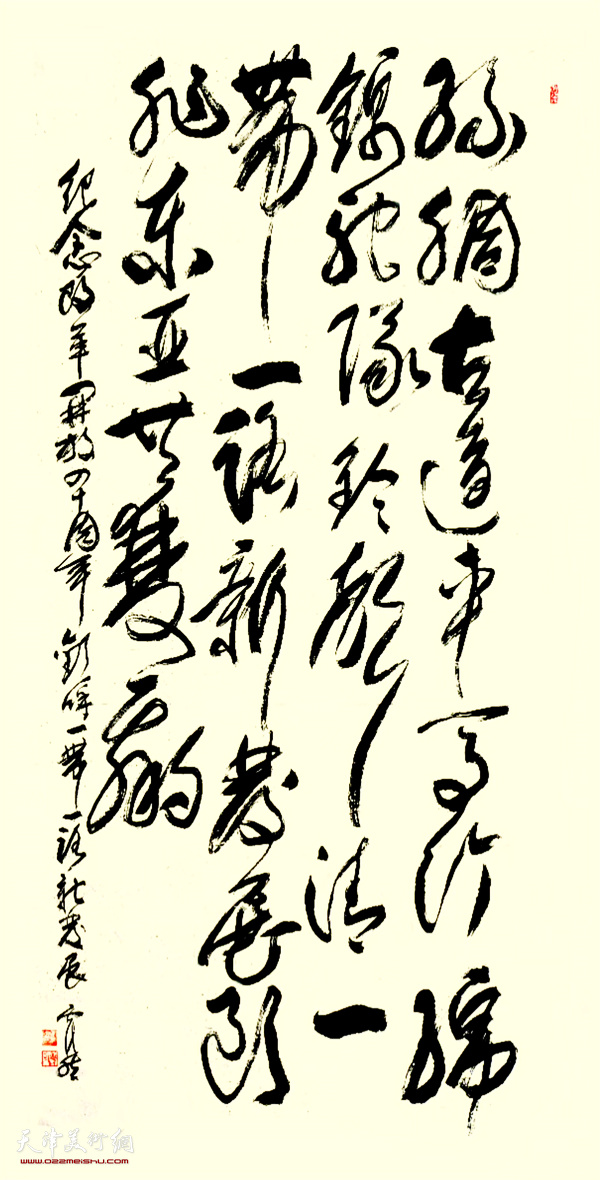 丝绸古道车马行 驿
镇驼队铃声清 一
带一路新发展 欧
非东亚共双赢
纪念改革开放四十周年 欢呼一带一路新发展
天津美术网
www.022meishu.com